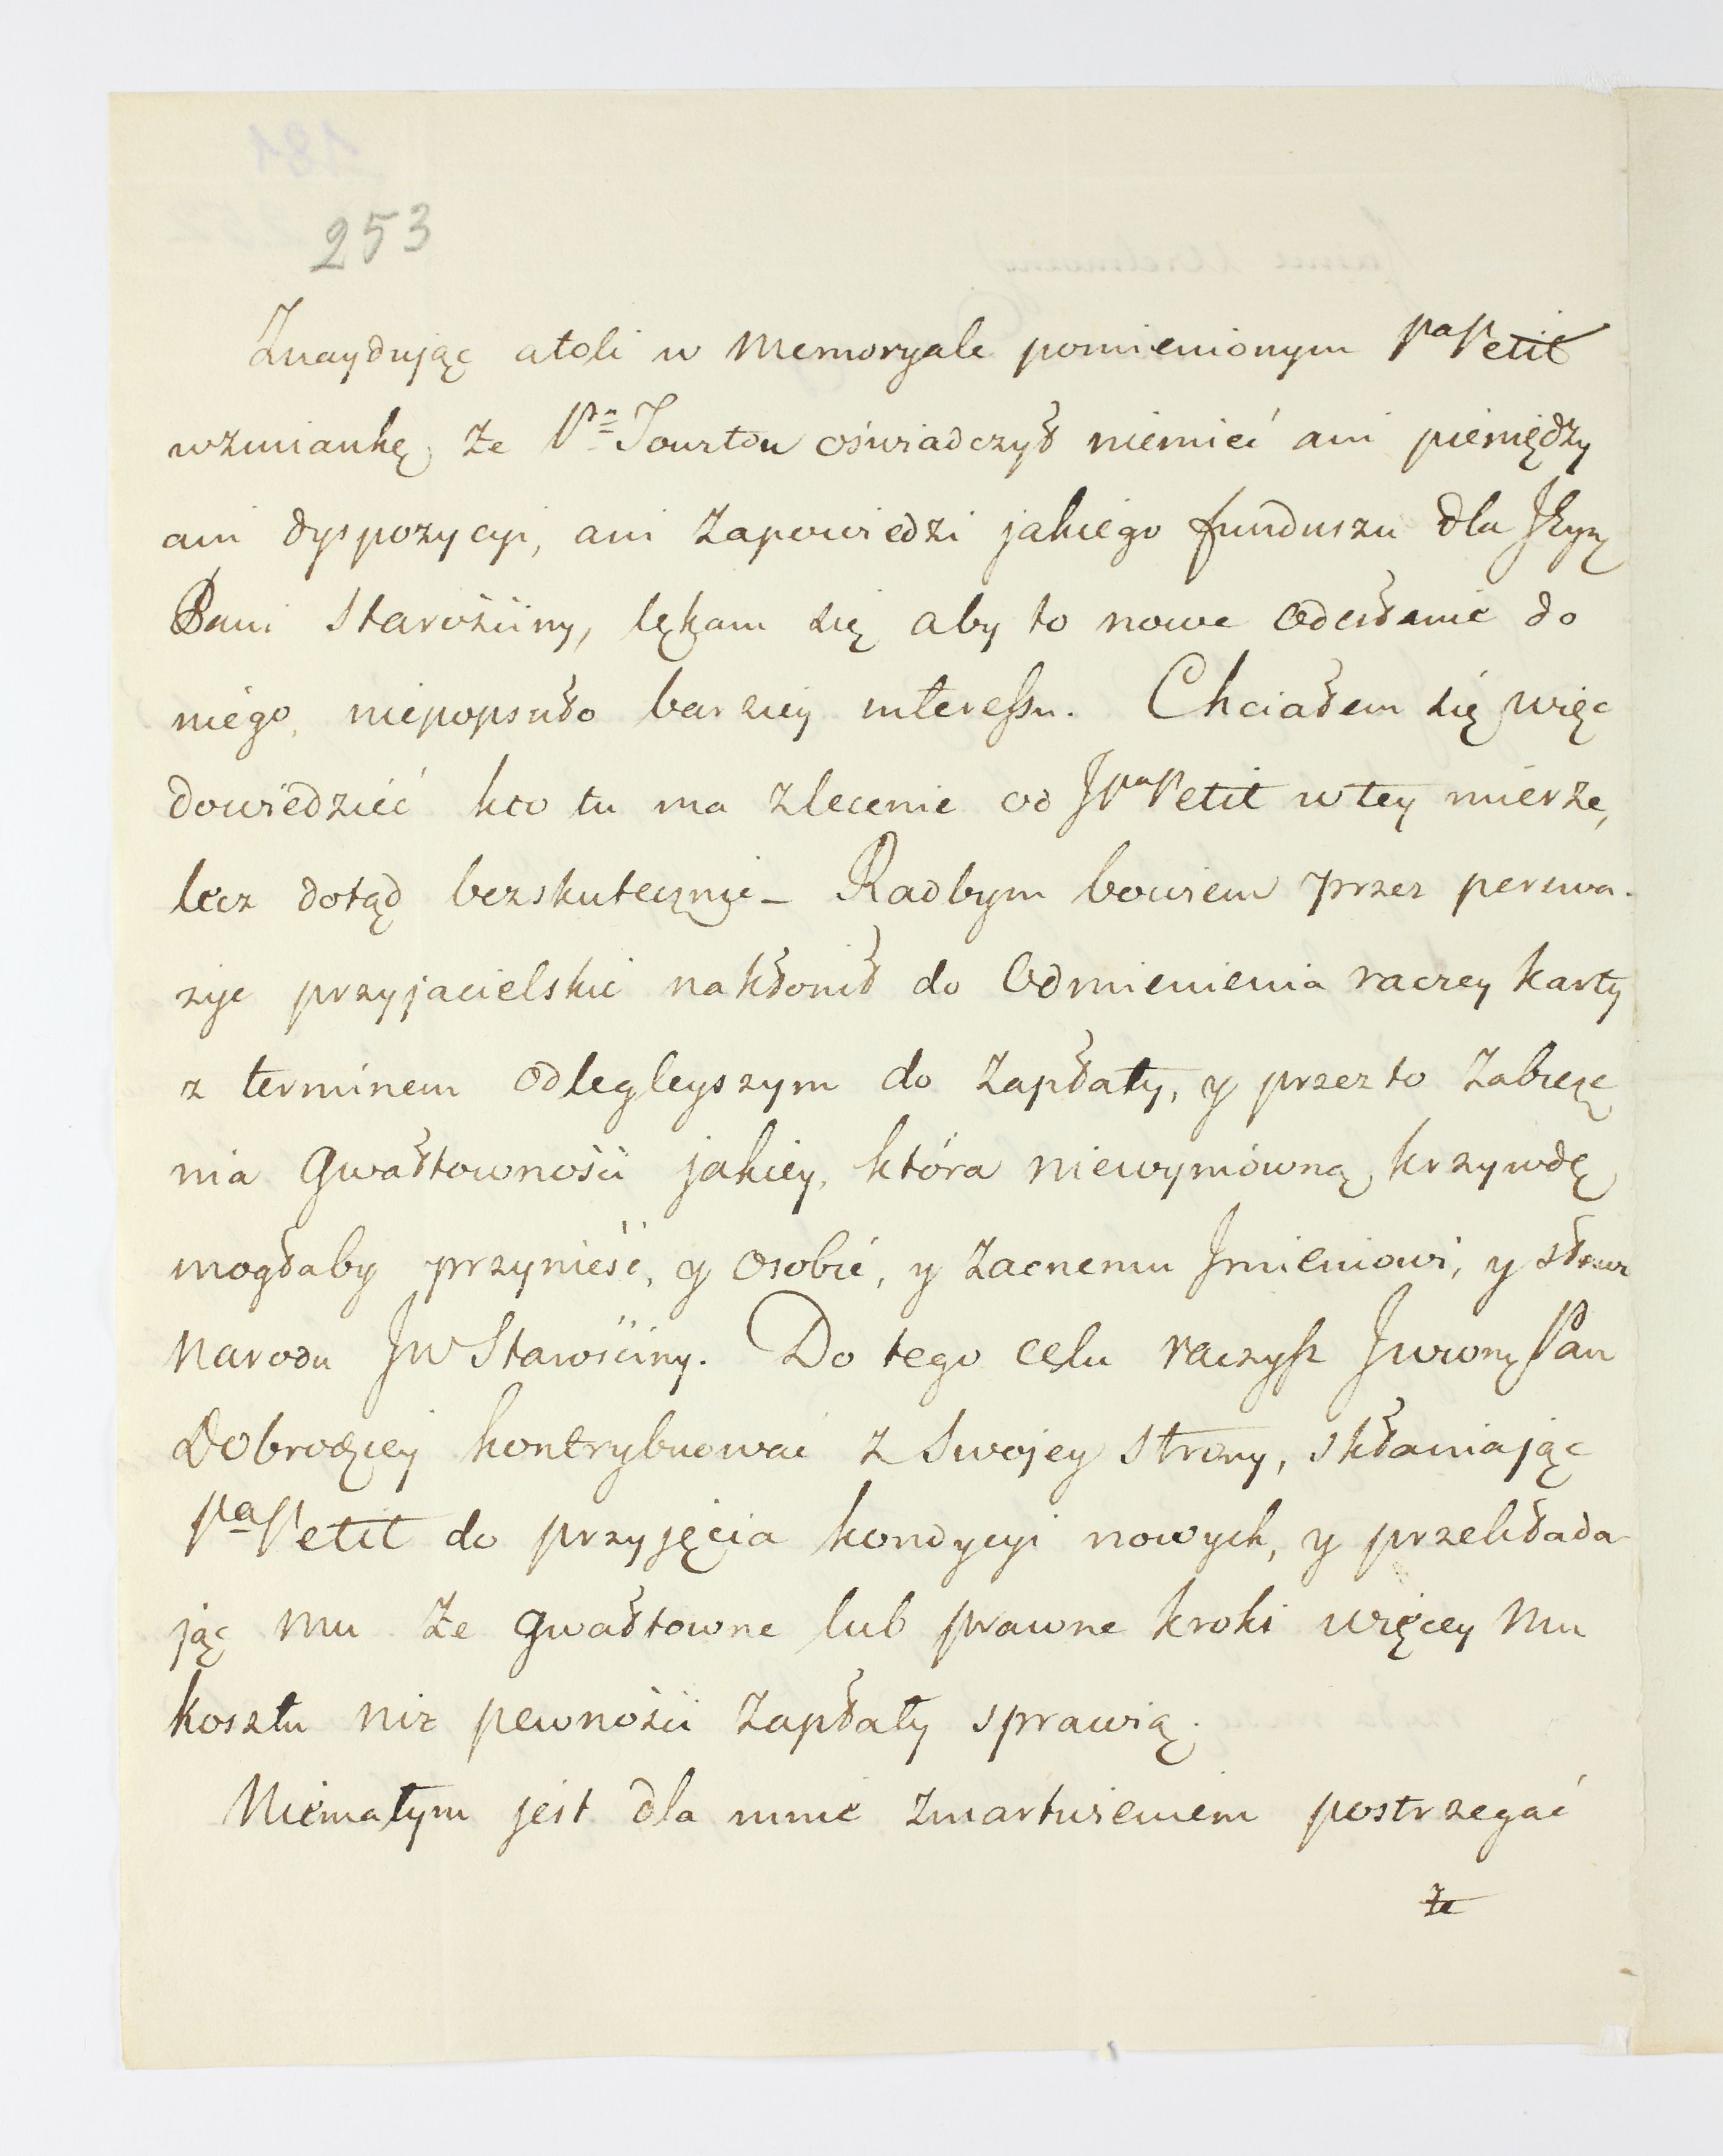 253
Znaydując atoli w Memoryale pomienionym Pa Petit
wzmiankę, że Pn Tourton oświadczył niemieć ani pieniędzy
ani dyspozycyi, ani zapowiedzi jakiego funduszu dla
Pani Starościny, lękam się aby to nowe odesłanie do
niego, niepopsuło barziey interessu. Chciałem się więc
dowiedzieć kto tu ma zlecenie od JPa Petit w tey mierze,
lecz dotąd bezskutecznie _ Radbym bowiem przez perswa-
zye przyjacielskie nakłonił do odmienienia raczey karty
z terminem odległeyszym do zapłaty, y przez to zabieże
nia gwałtowności jakiey, która niewymówną krzywdę
mogłaby przynieść, y osobie, y zacnemu Jmieniowi, y
narodu JW Starościny. Do tego celu raczysz Jwwny Pan
Dobrodziey kontrybuować z swojey strony, skłaniając
Pa Petit do przyjęcia kondycyi nowych, y przekłada-
jąc mu że gwałtowne lub prawne kroki więcey mu
kosztu niż pewności zapłaty sprawią.
Niemałym jest dla mnie zmartwieniem postrzegać
że